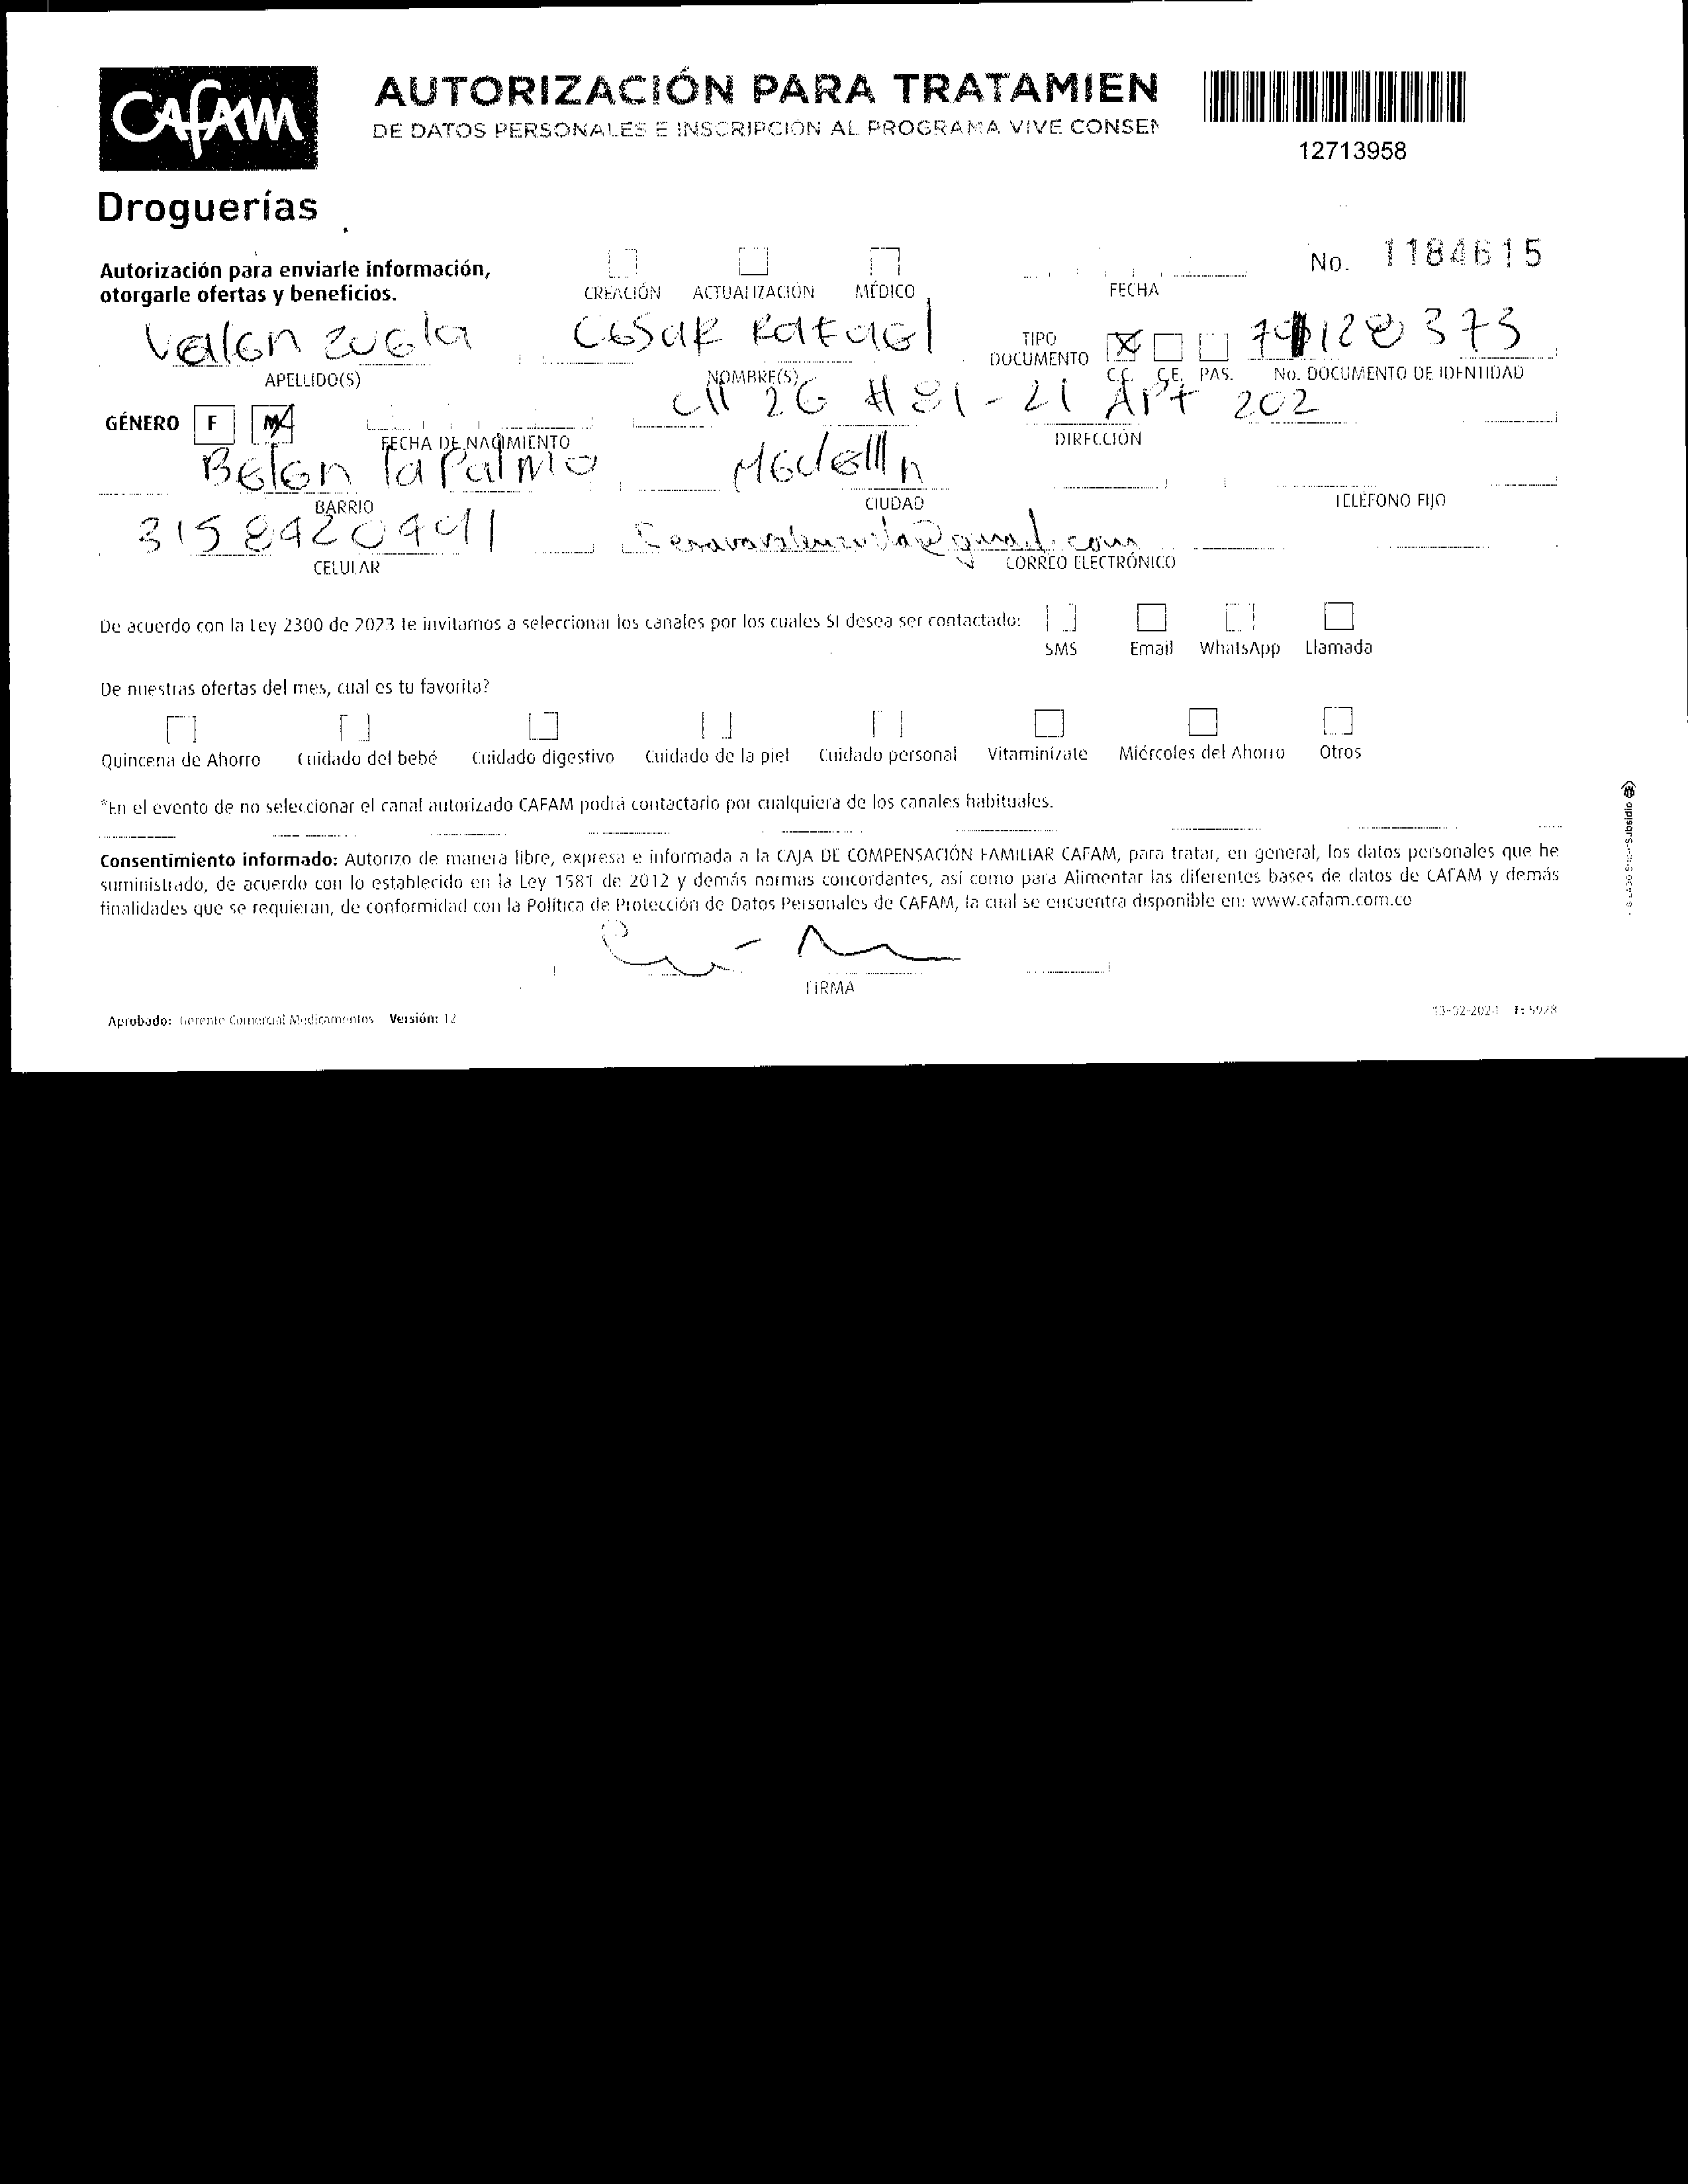 CAFAM
Droguerías
AUTORIZACIÓN PARA TRATAMIEN
DE DATOS PERSONALES E INSCRIPCIÓN AL PROGRAMA VIVE CONSEN
12713958
No. 1184615
Autorización para enviarle información,
otorgarle ofertas y beneficios.
CREACIÓN ACTUALIZACIÓN MÉDICO FECHA
Valen zuela Cesar Rafael TIPO DOCUMENTO C.C. C.E. PAS.
APELLIDO(S) NOMBRE(S) No. DOCUMENTO DE IDENTIDAD
GÉNERO F M Cll 26 # 81-21 Apt 202
FECHA DE NACIMIENTO DIRECCIÓN
Belen la Palma Medellin
BARRIO CIUDAD TELÉFONO FIJO
CELULAR CORREO ELECTRÓNICO
De acuerdo con la Ley 2300 de 2023 te invitamos a seleccionar los canales por los cuales SI desea ser contactado:
SMS Email WhatsApp Llamada
De nuestras ofertas del mes, cual es tu favorita?
Quincena de Ahorro Cuidado del bebé Cuidado digestivo Cuidado de la piel Cuidado personal Vitaminízate Miércoles del Ahorro Otros
*En el evento de no seleccionar el canal autorizado CAFAM podrá contactarlo por cualquiera de los canales habituales.
Consentimiento informado: Autorizo de manera libre, expresa e informada a la CAJA DE COMPENSACIÓN FAMILIAR CAFAM, para tratar, en general, los datos personales que he
suministrado, de acuerdo con lo establecido en la Ley 1581 de 2012 y demás normas concordantes, así como para Alimentar las diferentes bases de datos de CAFAM y demás
finalidades que se requieran, de conformidad con la Política de Protección de Datos Personales de CAFAM, la cual se encuentra disponible en: www.cafam.com.co
FIRMA
Aprobado: Gerente Comercial Medicamentos Versión: 12